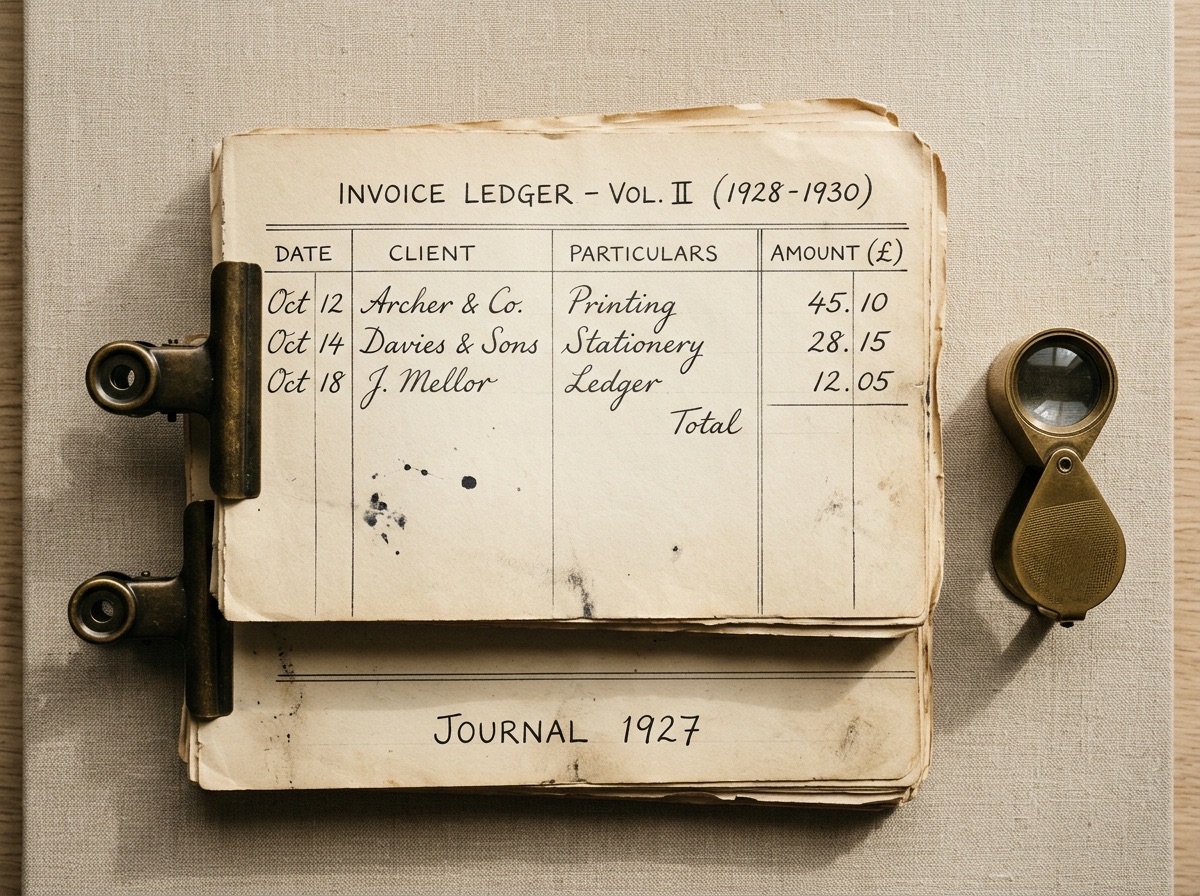 INVOICE LEDGER – VOL. II (1928-1930)
DATE CLIENT PARTICULARS AMOUNT (£)
Oct 12 Archer & Co. Printing 45.10
Oct 14 Davies & Sons Stationery 28.15
Oct 18 J. Mellor Ledger 12.05
Total
JOURNAL 1927